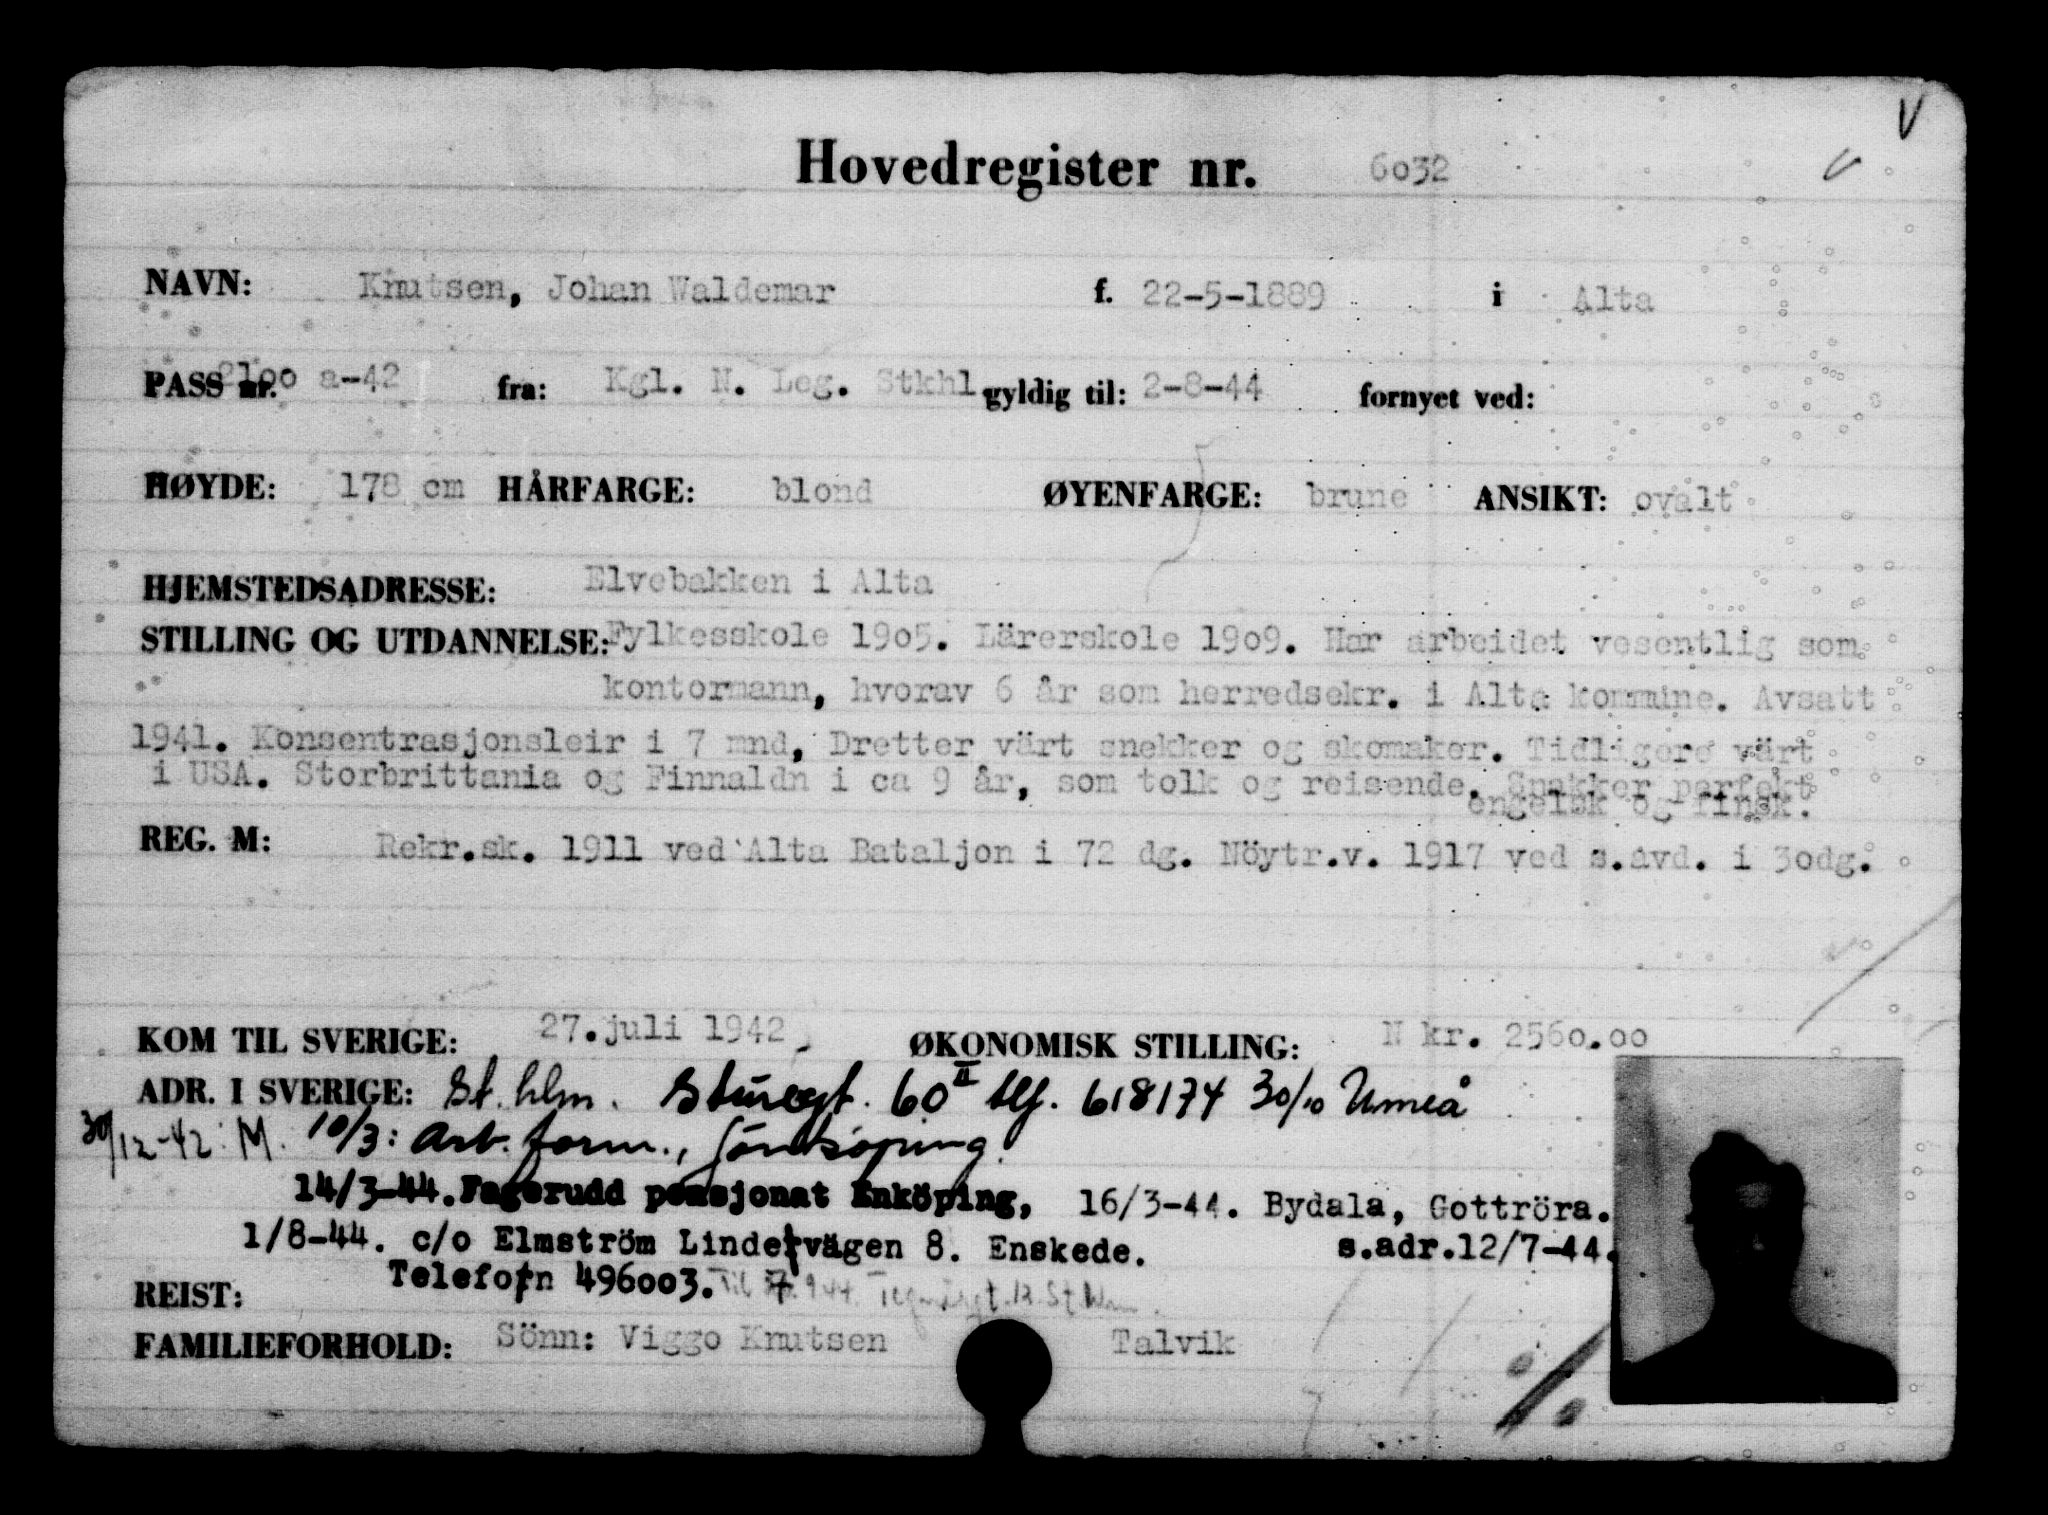 Hovedregister nr. 6032
NAVN: Knutsen, Johan Waldemar f. 22-5-1889 i Alta
PASS nr. 2loo a-42 fra: Kgl. N. Leg. Stkhl. gyldig til: 2-8-44 fornyet ved:
HØYDE: 178 cm HÅRFARGE: blond ØYENFARGE: brune ANSIKT: ovalt
HJEMSTEDSADRESSE: Elvebakken i Alta
STILLING OG UTDANNELSE: Fylkesskole 19o5. Lärerskole 19o9. Har arbeidet vesentlig som
kontormann, hvorav 6 år som herredsekr. i Alta kommune. Avsatt
1941. Konsentrasjonsleir i 7 mnd, Dretter värt snekker og skomaker. Tidligere värt
i USA. Storbrittania og Finnaldn i ca 9 år, som tolk og reisende. Snakker perfekt
engelsk og finsk.
REG. M: Rekr.sk. 1911 ved Alta Bataljon i 72 dg. Nöytr.v. 1917 ved s.avd. i 3odg.
KOM TIL SVERIGE: 27.juli 1942. ØKONOMISK STILLING: N kr. 256o.oo
ADR. I SVERIGE: St.hlm. Sturegt. 60 II tlf. 618174 30/10 Umeå
30/12-42: M. 10/3: Arb. form., Jönköping.
14/3-44. Fagerudd pensjonat Enköping, 16/3-44. Bydala, Gottröra.
1/8-44. c/o Elmström Lindetvägen 8. Enskede. s.adr.12/7-44.
Telefotn 496oo3. Til St.hlm.
REIST:
FAMILIEFORHOLD: Sönn: Viggo Knutsen Talvik